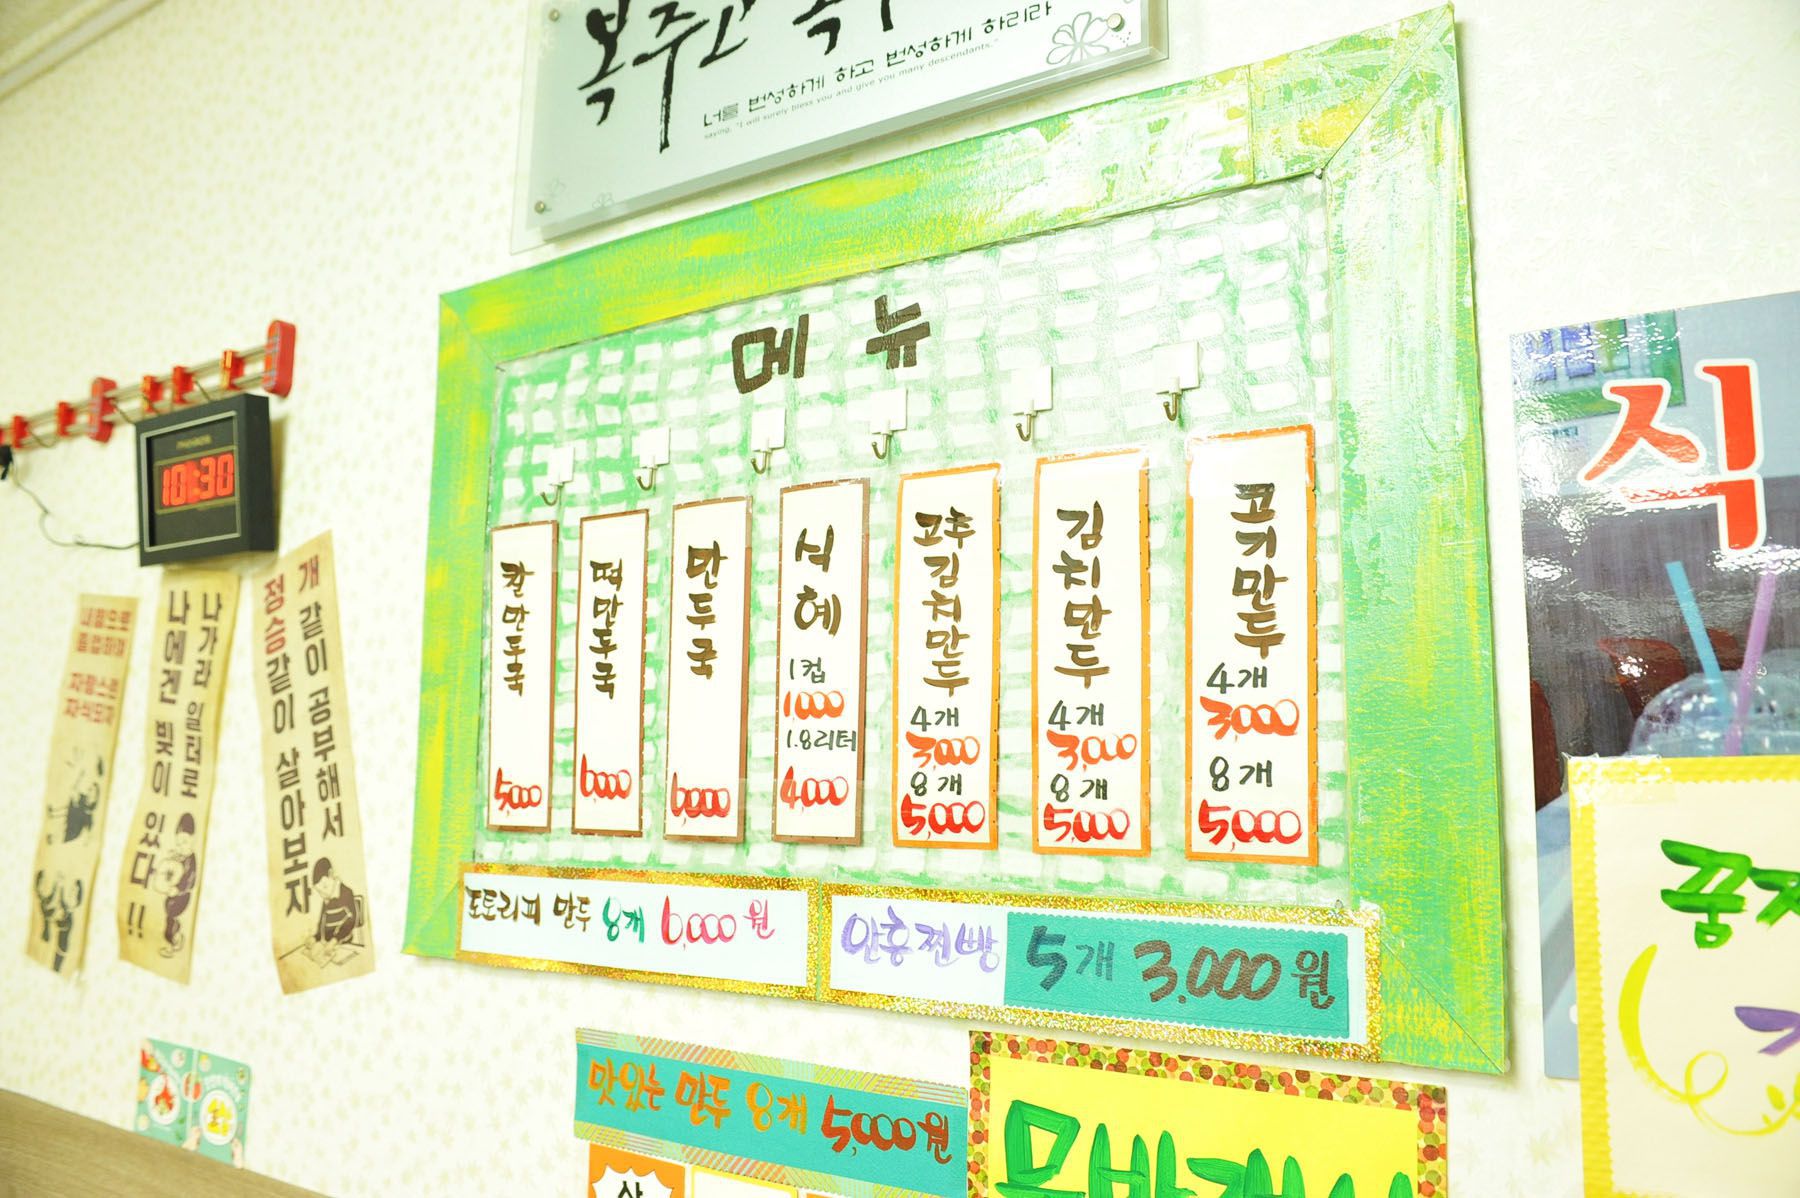 복주고
너를 번성하게 하고 번성하게 하리라
saying, "I will surely bless you and give you many descendants."
메뉴
칼만두국
5,000
떡만두국
6,000
만두국
6,000
식혜
1컵
1,000
1.8리터
4,000
고추김치만두
4개
3,000
8개
5,000
김치만두
4개
3,000
8개
5,000
고기만두
4개
3,000
8개
5,000
도토리피 만두 8개 6,000원
안흥찐빵 5개 3,000원
맛있는 만두 8개 5,000원
10:30
자랑스런
자식되자
나가라 일터로
나에겐 빚이 있다!!
개같이 공부해서
정승같이 살아보자
식